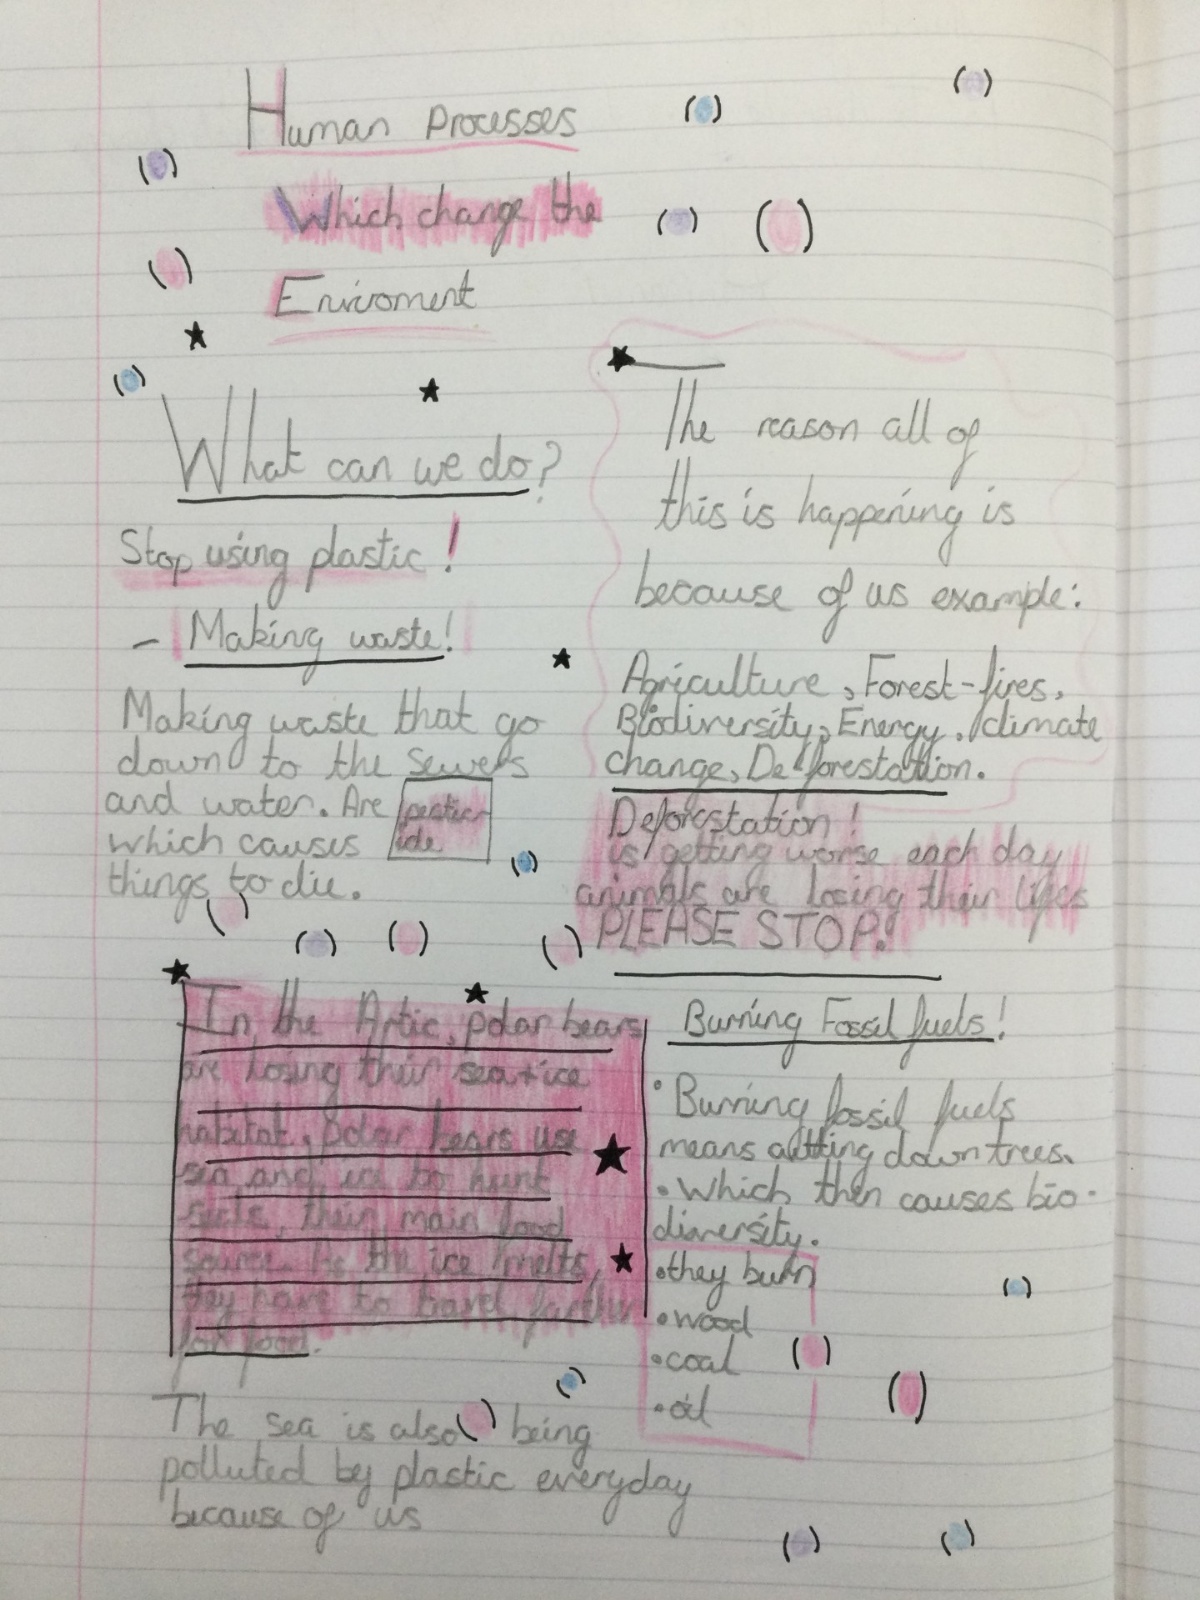 Human Processes
Which change the
Enviroment
What can we do?
Stop using plastic!
- Making waste!
Making waste that go
down to the sewers
and water. Are
pestic-
ide
which causes
things to die.
In the Artic, polar bears
are losing their sea+ice
habitat, polar bears use
sea and ice to hunt
seals, their main food
source. As the ice melts,
they have to travel farther
for food.
The sea is also being
polluted by plastic everyday
because of us
The reason all of
this is happening is
because of us example:
Agriculture, Forest-fires,
Biodiversity, Energy, climate
change, Deforestation.
Deforestation!
is getting worse each day
animals are losing their lifes
PLEASE STOP!
Burning Fossil fuels!
• Burning fossil fuels
means cutting down trees.
• Which then causes bio-
diversity.
• they burn
• wood
• coal
• oil